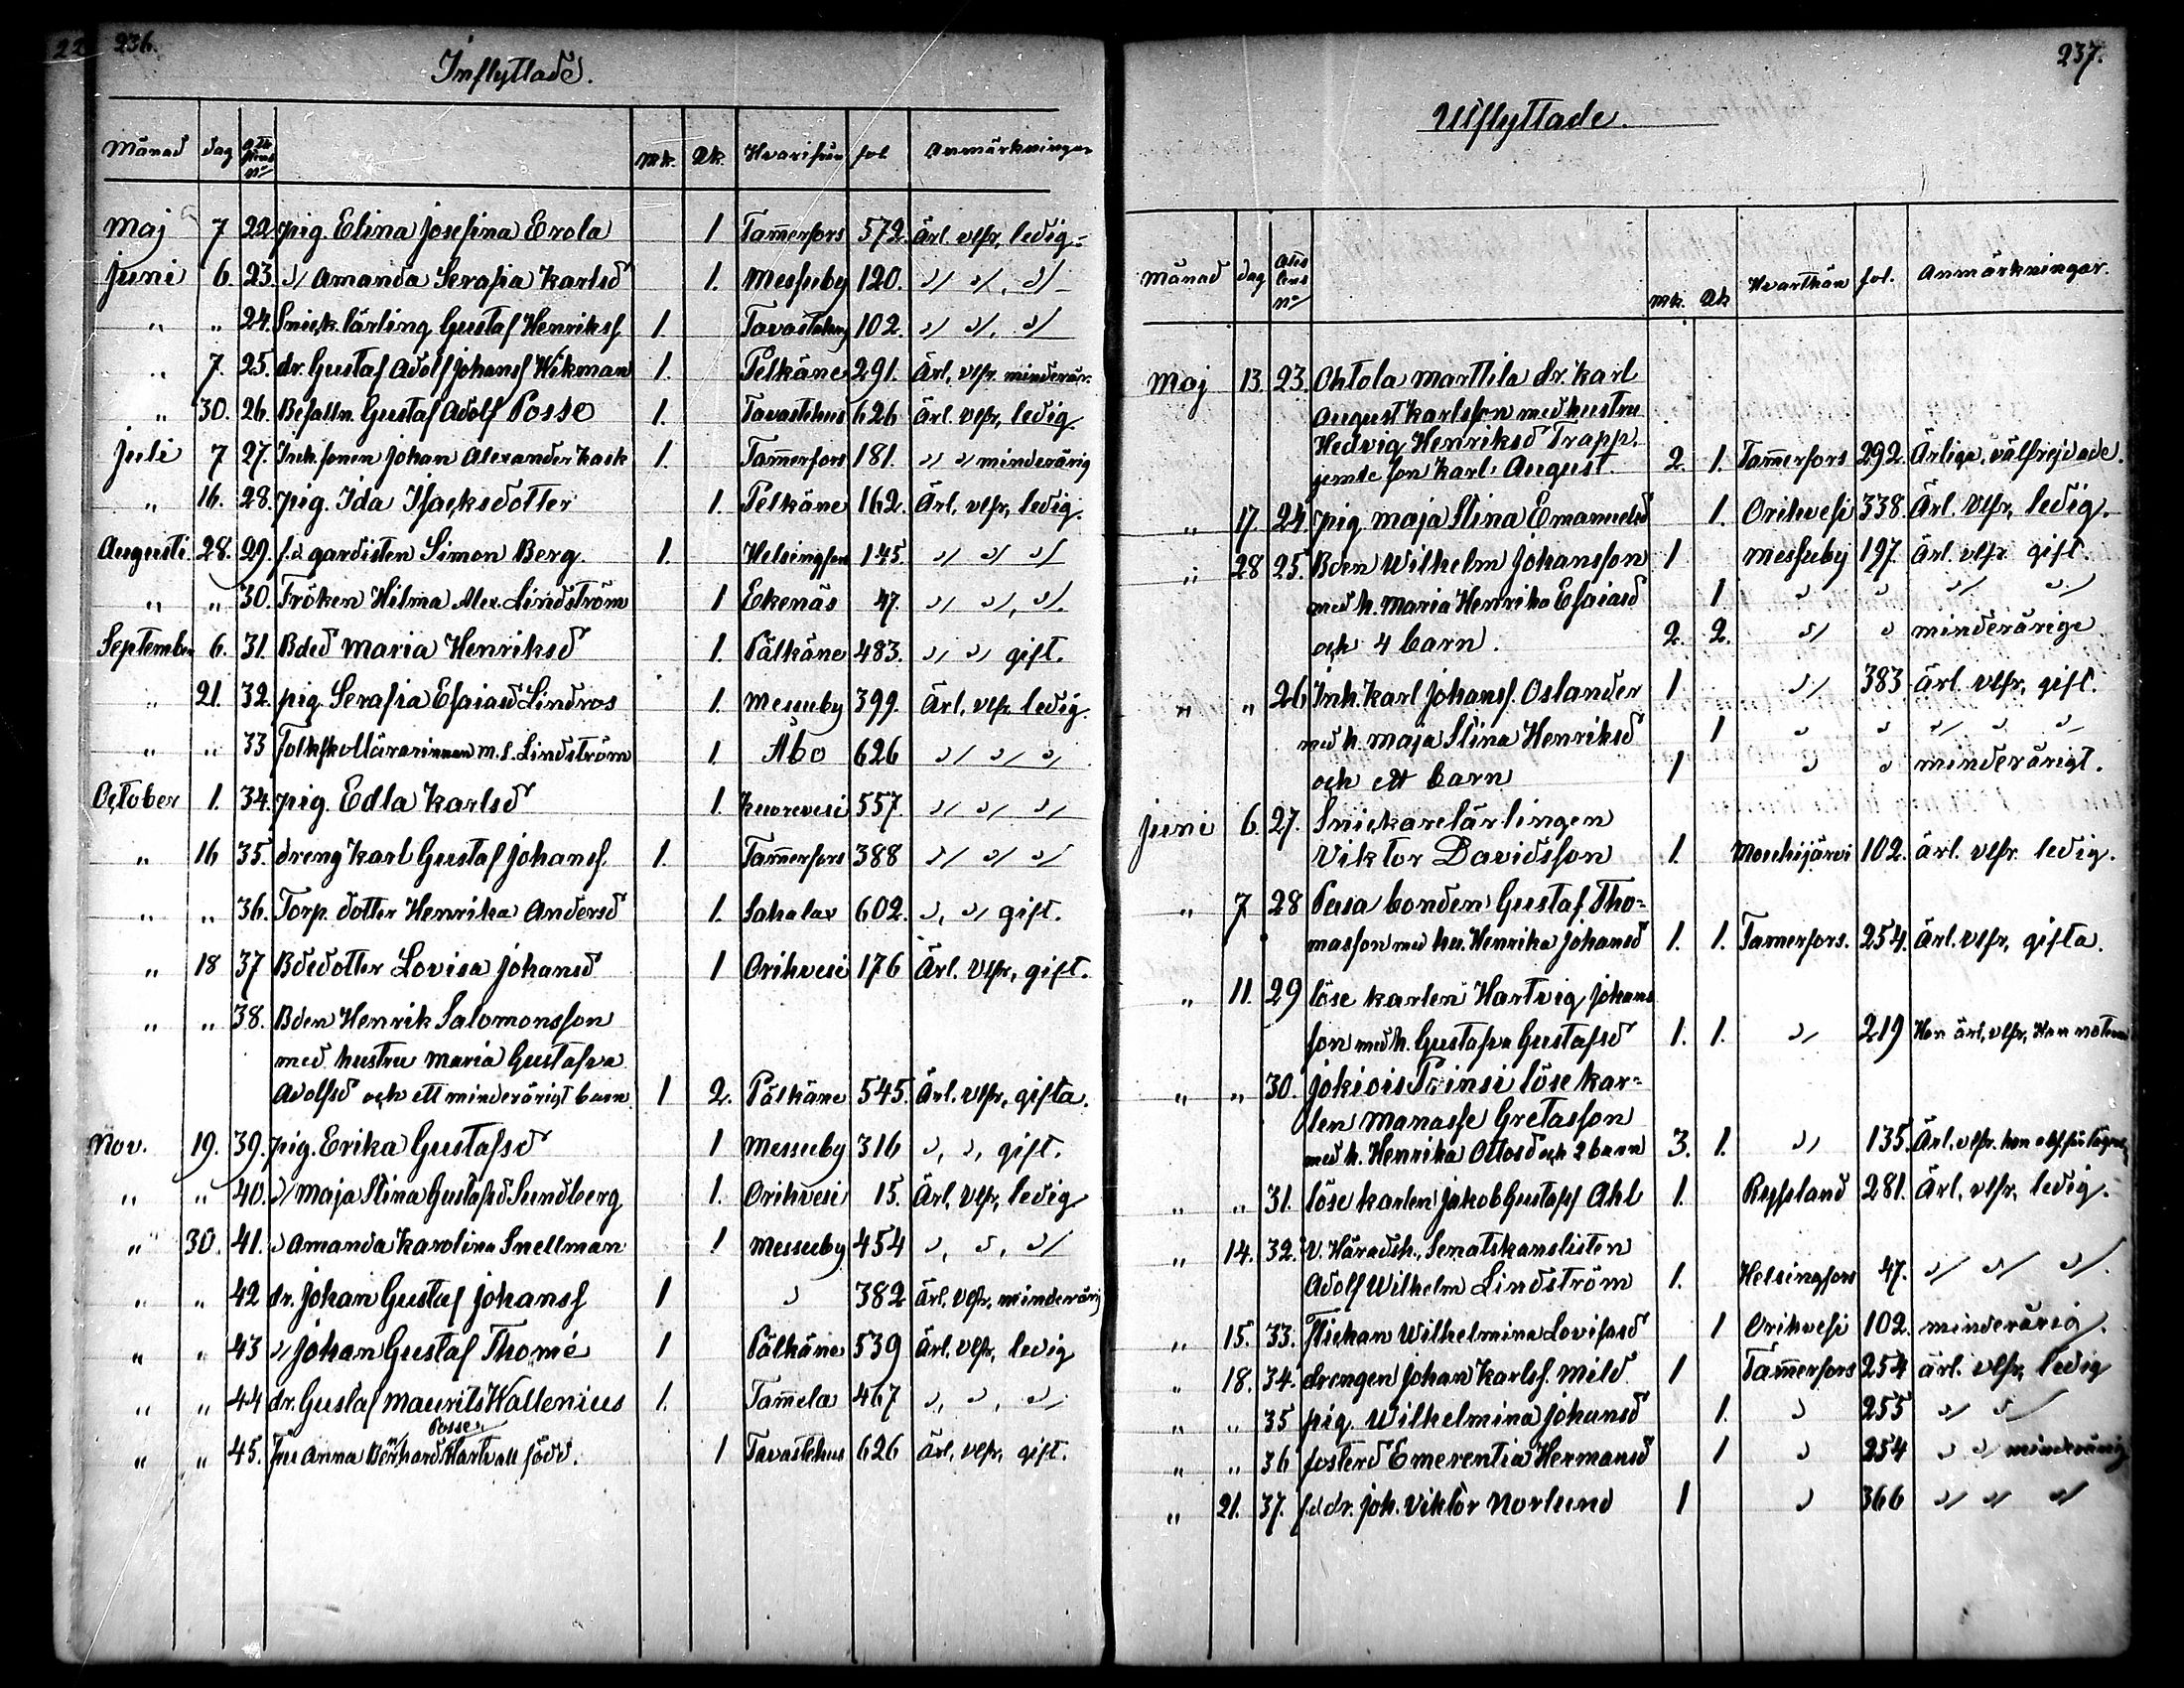 22 236.
Inflyttade.
Månad dag Attestens No Mk. Qk. Hvarifrån fol Anmärkningar
Maj 7 22 pig. Elina Josefina Erola 1 Tam̄erfors 572. Ärl. vlfr, ledig.
Juni 6. 23. " Amanda Serafia Karlsd 1. Messuby 120. " " "
" " 24. Snick. lärling Gustaf Henrikss 1. Tavastehus 102. " " "
" 7. 25. dr. Gustaf Adolf Johanss Wikman 1. Pelkäne 291. Ärl. vlfr. minderår.
" 30. 26. Befalln. Gustaf Adolf Posse 1. Tavastehus 626 Ärl. vlfr, ledig
Juli 7 27. Inh. sonen Johan Alexander Kask 1. Tam̄erfors 181. " " minderårig
" 16. 28. pig. Ida Isacksdotter 1. Pelkäne 162. Ärl. vlfr, ledig.
Augusti 28. 29. f.d gardisten Simon Berg. 1. Helsingfors 145. " " "
" " 30. Fröken Hilma Alex. Lindström 1 Ekenäs 47. " " "
September 6. 31. Bded Maria Henriksd 1. Pälkäne 483. " " gift.
" 21. 32. pig. Serafia Esaiasd Lindros 1. Messuby 399. Ärl. vlfr ledig.
" " 33 Folkskollärarinnan M. S. Lindström 1. Åbo 626 " " "
October 1. 34. pig. Edla Karlsd 1. Kuorevesi 557. " " "
" 16 35. dreng Karl Gustaf Johanss. 1. Tam̄erfors 388 " " "
" " 36. Torp. dotter Henrika Andersd 1. Sahalax 602. " " gift.
" 18 37 Bdedotter Lovisa Johansd 1 Orihvesi 176 Ärl. vlfr, gift.
" " 38. Bden Henrik Salomonsson
med hustru Maria Gustafva
Adolfsd och ett minderårigt barn 1 2. Pälkäne 545. Ärl. vlfr, gifta.
Nov. 19. 39. pig. Erika Gustafsd 1 Messuby 316 " " gift.
" " 40. " Maja Stina Gustafsd Sundberg 1. Orihvesi 15. Ärl. vlfr, ledig
" 30. 41. " Amanda Karolina Snellman 1 Messuby 454 " " "
" " 42 dr. Johan Gustaf Johanss 1 " 382 Ärl. vlfr, minderårig
" " 43 " Johan Gustaf Thomé 1 Pälkäne 539 Ärl. vlfr, ledig
" " 44 dr. Gustaf Maurits Wallenius 1. Tam̄ela 467 " " "
Posse
" " 45. fru Anna Bernhard Hartvall född. 1 Tavastehus 626 Ärl. vlfr, gift.
237.
Utflyttade.
Månad dag Attestens No Mk. Qk Hvarthän fol. Anmärkningar.
Maj 13. 23. Ohtola Marttila dr. Karl
August Karlsson med hustru
Hedvig Henriksd Trapp,
jemte son Karl August. 2. 1. Tam̄erfors 292. Ärliga, välfrejdade.
" 17 24 pig Maja Stina Emanuelsd 1. Orihvesi 338. Ärl. vlfr, ledig.
" 28 25. Bden Wilhelm Johansson 1 Messuby 197 ärl. vlfr gift.
med h. Maria Henrika Esaiasd 1 " " " "
och 4 barn. 2. 2. " " minderårige
" " 26 Inh. Karl Johanss. Oslander 1 " 383 ärl. vlfr, gift.
med h. Maja Stina Henriksd 1 " " " " "
och ett barn 1 " " minderårigt.
Juni 6. 27. Snickarelärlingen
Viktor Davidsson 1. Mouhijärvi 102. ärl. vlfr. ledig.
" 7 28 Pasa bonden Gustaf Tho-
masson med hu. Henrika Johansd 1. 1. Tamerfors. 254. Ärl. vlfr, gifta.
" 11. 29 löse karlen Hartvig Johans
son med h. Gustafva Gustafsd 1. 1. " 219
" " 30. Jokiois Prinsi löse kar-
len Manasse Gretasson
med h. Henrika Ottosd och 2 barn 3. 1. " 135.
" " 31. löse karlen Jakob Gustafss Ahl 1. Ryssland 281. Ärl. vlfr, ledig.
" 14. 32. V. Häradsh., Senatskanslisten
Adolf Wilhelm Lindström 1. Helsingfors 47. " " "
" 15. 33. Flickan Wilhelmina Lovisasd 1 Orihvesi 102. minderårig.
" 18. 34. drengen Johan Karlss. Mild 1 Tam̄erfors 254 ärl. vlfr, ledig
" " 35 pig Wilhelmina Johansd 1. " 255 " "
" " 36 fosterd Emerentia Hermansd 1 " 254 " " minderårig
" 21. 37. f.d. dr. Joh. Viktor Norlund 1 " 366 " " "